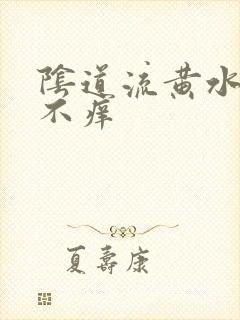 陰道流黄水
不痒
夏壽康